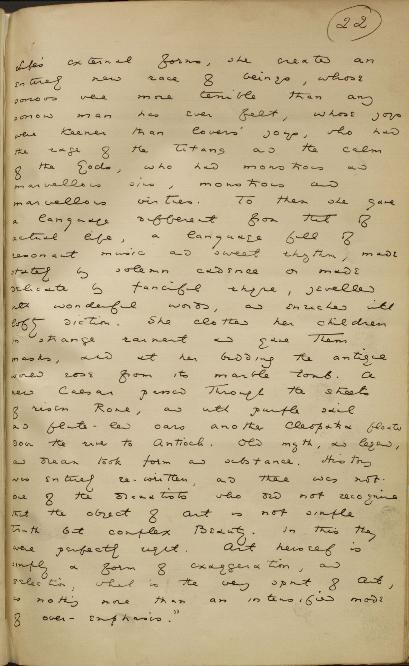 22
life's external forms, she created an
entirely new race of beings, whose
sorrows were more terrible than any
sorrow man has ever felt, whose joys
were keener than lovers' joys, who had
the rage of the Titans and the calm
of the Gods, who had monstrous and
marvellous sins, monstrous and
marvellous virtues. To them she gave
a language different from that of
actual life, a language full of
resonant music and sweet rhythm, made
stately by solemn cadence or made
delicate by fanciful rhyme, jewelled
with wonderful words, and enriched with
lofty diction. She clothed her children
in strange raiment and gave them
masks, and at her bidding the antique
world rose from its marble tomb. A
new Caesar passed through the streets
of risen Rome, and with purple sail
and flute-led oars another Cleopatra floated
down the river to Antioch. Old myth, and legend,
and dream took form and substance. History
was entirely re-written, and there was not
one of the dramatists who did not recognise
that the object of Art is not simple
truth but complex Beauty. In this they
were perfectly right. Art herself is
simply a form of exaggeration, and
selection, which is the very spirit of Art,
is nothing more than an intensified mode
of over-emphasis."